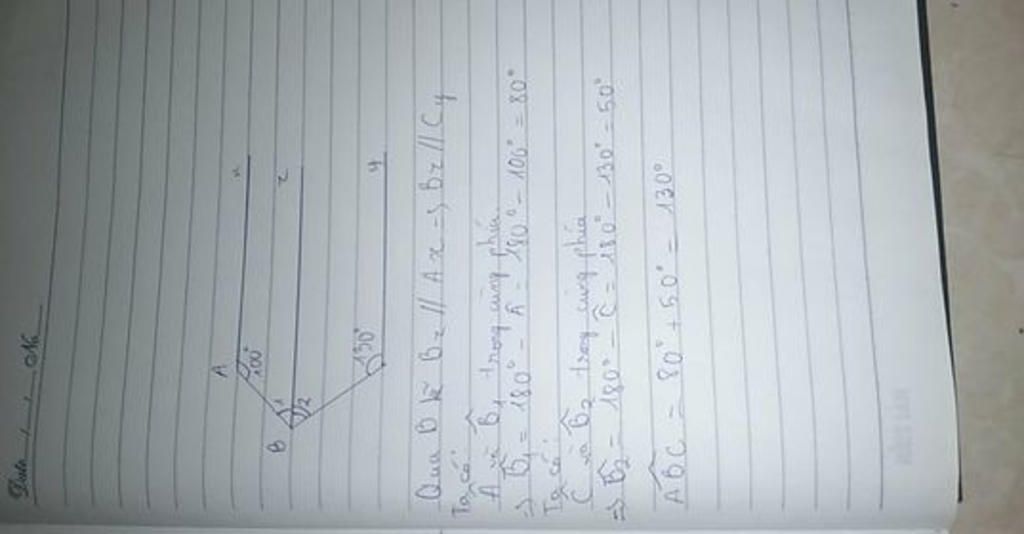 Date / / No
A
x
100°
z
B
1
2
130°
y
Qua B kẽ Bz // Ax => Bz // Cy
Ta có:
Â và B̂₁ trong cùng phía
=> B̂₁ = 180° - Â = 180° - 100° = 80°
Ta có:
Ĉ và B̂₂ trong cùng phía
=> B̂₂ = 180° - Ĉ = 180° - 130° = 50°
ABC = 80° + 50° = 130°